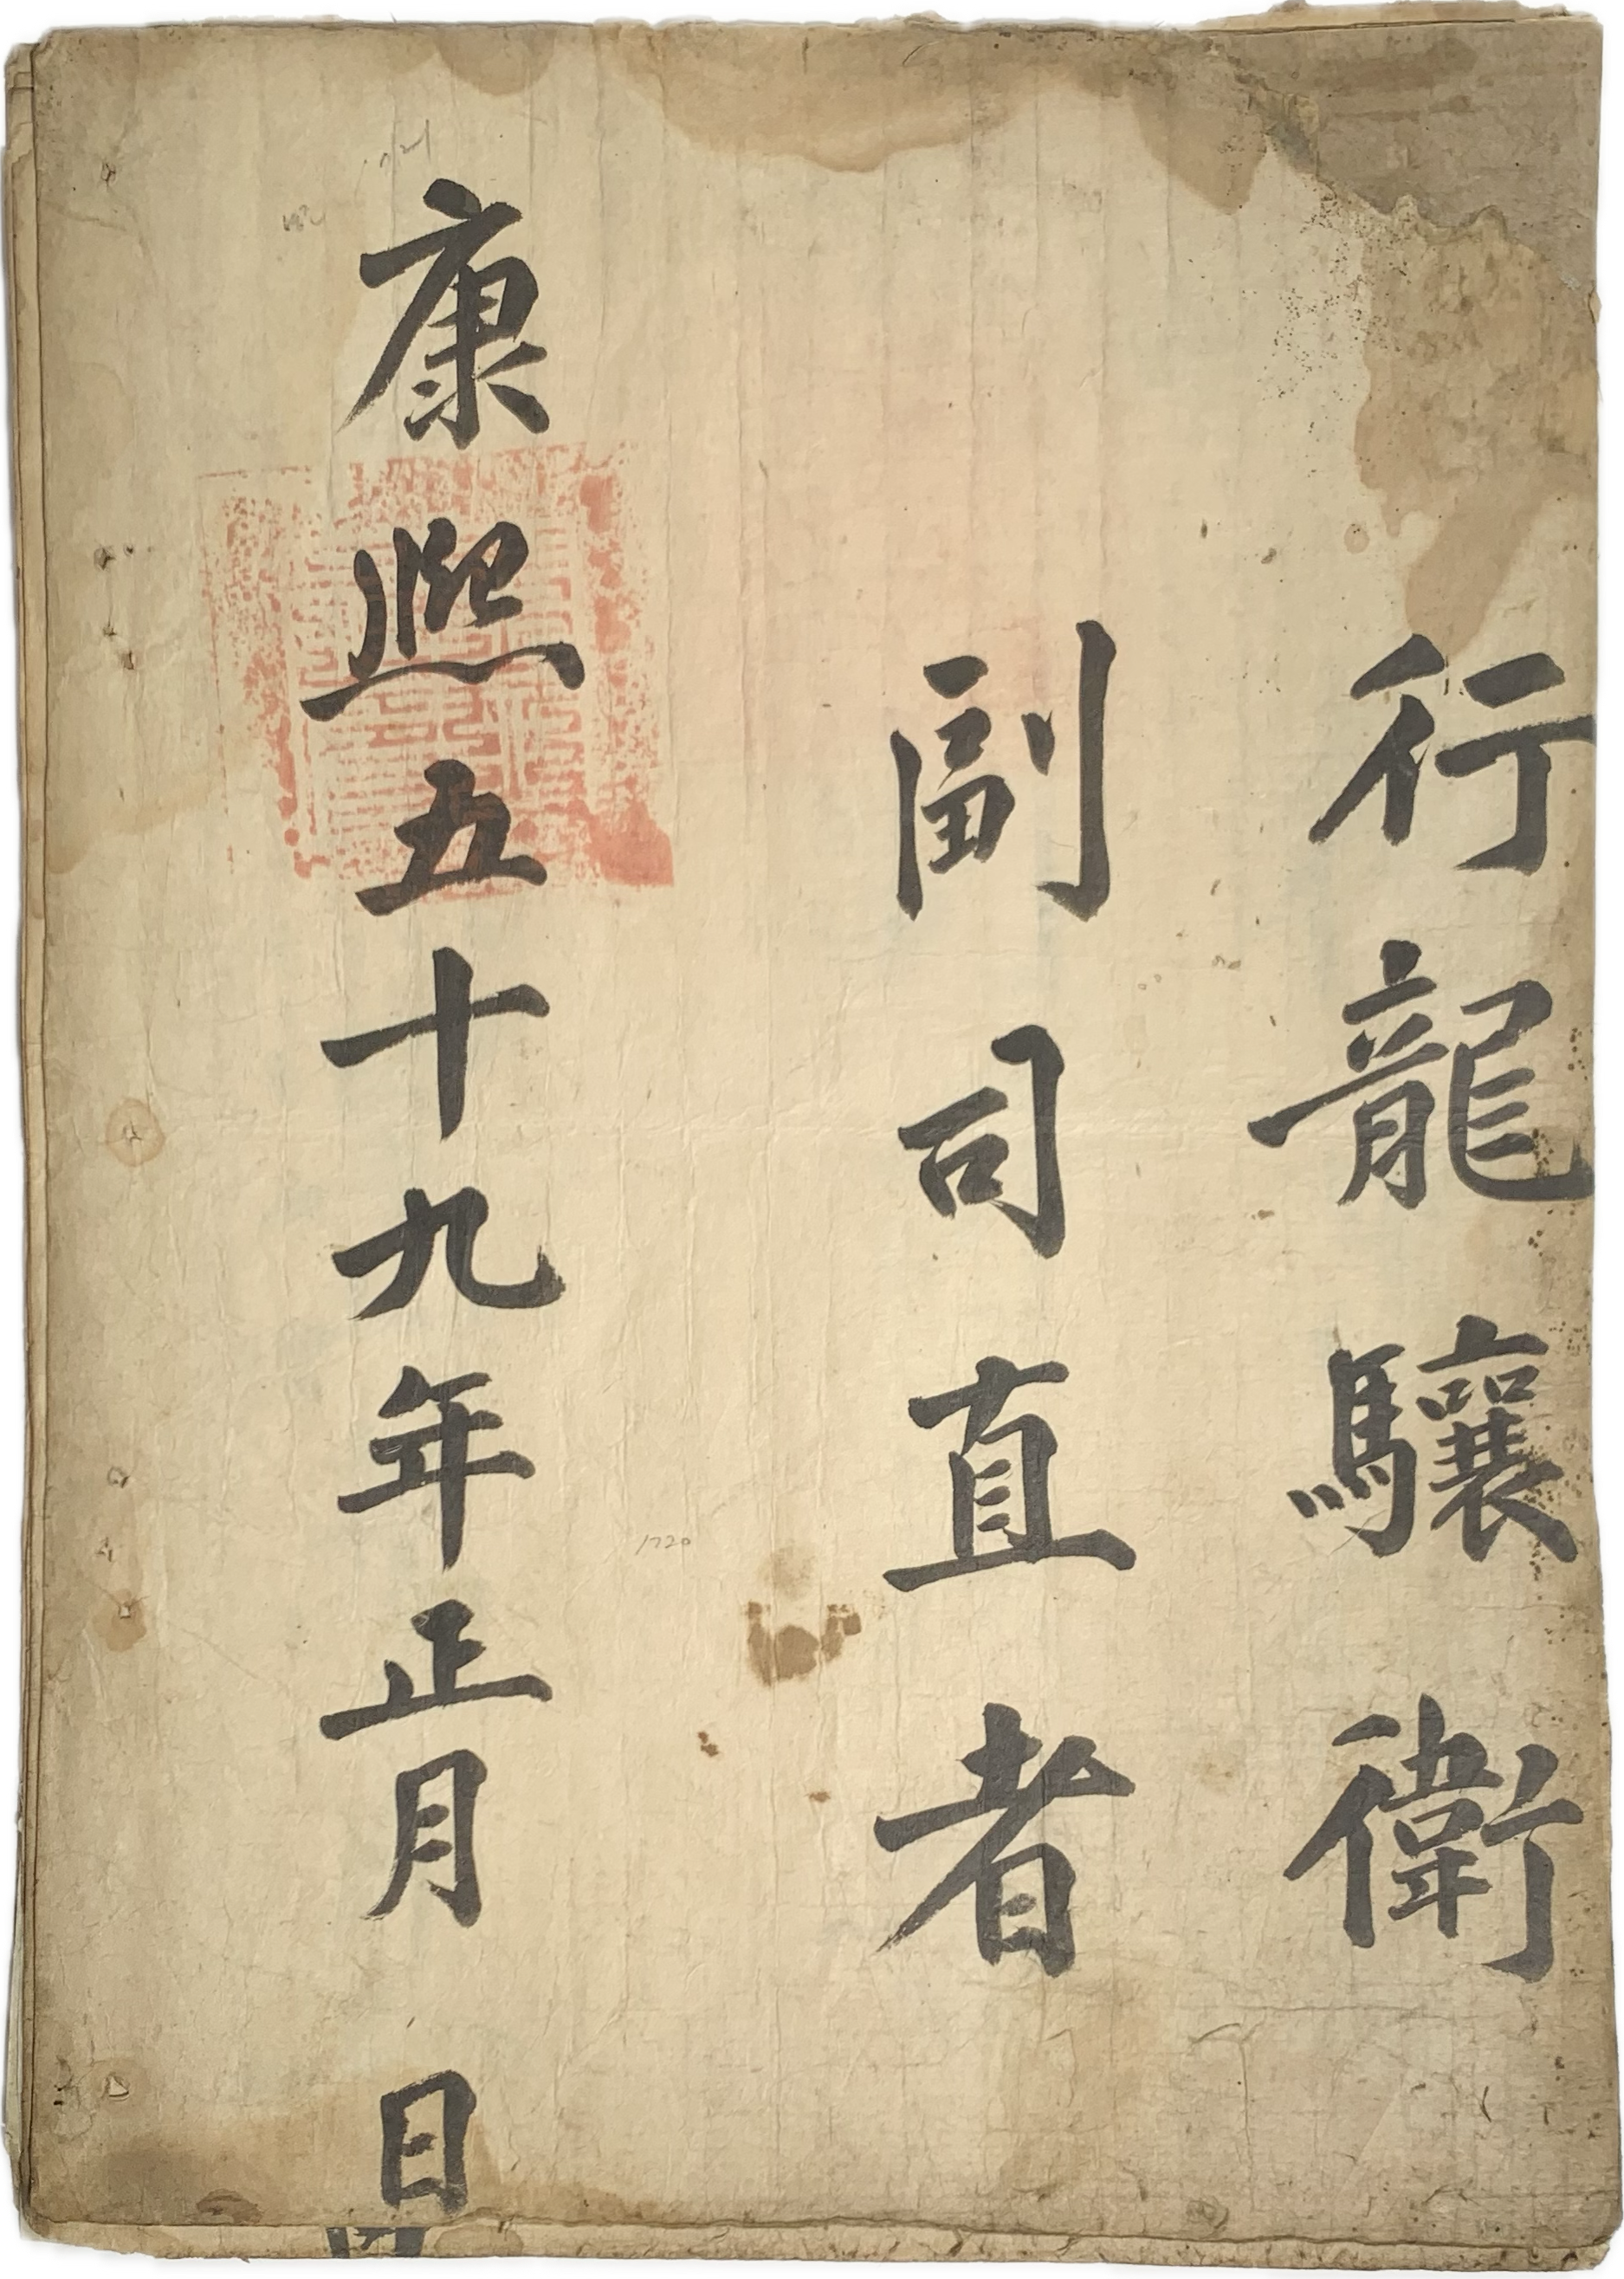 行龍驤衛
副司直者
康熙五十九年正月 日
1720